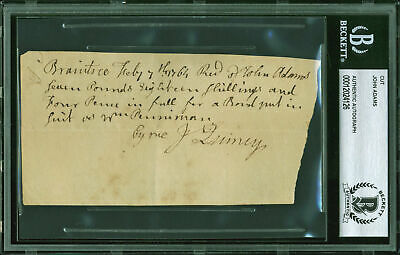 Braintree Feby 7 1764 Recd of John Adams
Seven Pounds Eighteen Shillings and
Four Pence in full for a Bond put in
Suit vs Wm Penniman
by me J Quincy
BECKETT
CUT
JOHN ADAMS
AUTHENTIC AUTOGRAPH
00012024126
BECKETT
AUTHENTIC